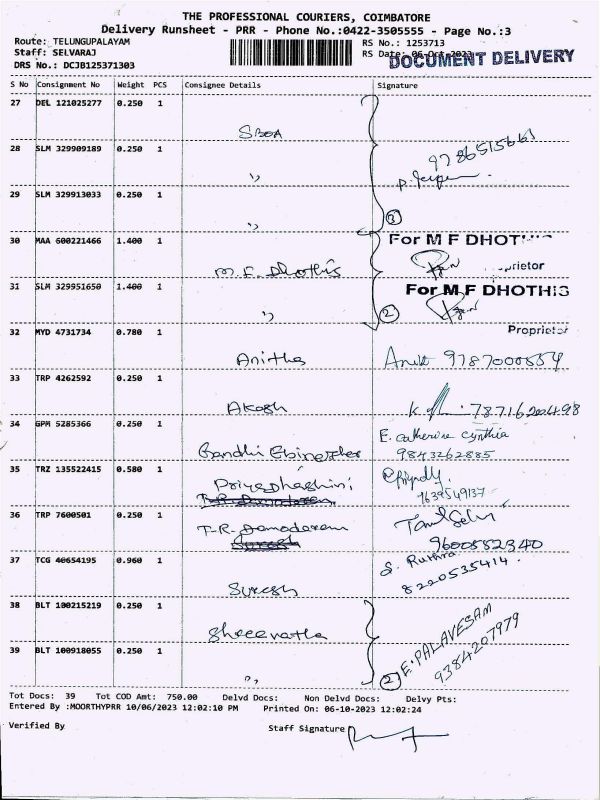 THE PROFESSIONAL COURIERS, COIMBATORE
Delivery Runsheet - PRR - Phone No.:0422-3505555 - Page No.:3
Route: TELUNGUPALAYAM RS No.: 1253713
Staff: SELVARAJ RS Date: 06-Oct-2023
DOCUMENT DELIVERY
DRS No.: DCJB125371303
S No Consignment No Weight PCS Consignee Details Signature
27 DEL 121025277 0.250 1
SBOA
28 SLM 329909189 0.250 1
"
29 SLM 329913033 0.250 1
" 3
30 MAA 600221466 1.400 1 For M F DHOT
M.F. Dhothis prietor
31 SLM 329951650 1.400 1 For M F DHOTHIS
" 2
32 MYD 4731734 0.780 1 Proprietor
Anitha 9787000554
33 TRP 4262592 0.250 1
Akash
34 GPM 5285366 0.250 1 E. Catherine Cynthia
Gandhi Ebinezher 9843262885
35 TRZ 135522415 0.580 1
Priyadhashini
36 TRP 7600501 0.250 1
T.R. Damodaram 9600552340
37 TCG 40654195 0.960 1 S. Ruthra
Suresh 8220535414.
38 BLT 100215219 0.250 1
39 BLT 100918055 0.250 1 E. PALAVESAM
" 2 9384207979
Tot Docs: 39 Tot COD Amt: 750.00 Delvd Docs: Non Delvd Docs: Delvy Pts:
Entered By :MOORTHYPRR 10/06/2023 12:02:10 PM Printed On: 06-10-2023 12:02:24
Verified By Staff Signature